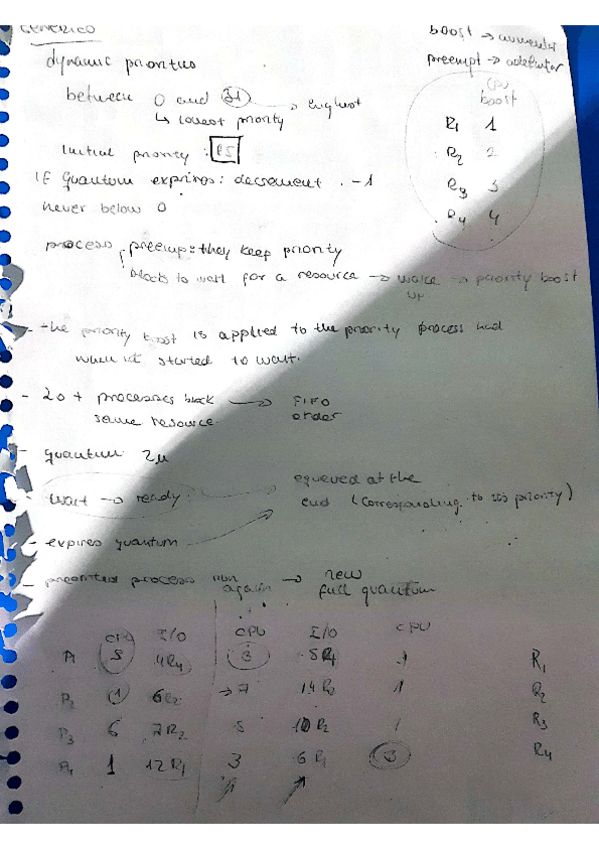 GENERICO
boost → aumentar
preempt → adelantar
dynamic priorities
CPU
boost
between 0 and 31 → highest
↳ lowest priority
R1 1
R2 2
R3 3
R4 4
Initial priority: 15
IF quantum expires: decrement. -1
never below 0
process preemp: they keep priority
blocks to wait for a resource → wake up → priority boost
- the priority boost is applied to the priority process had
when it started to wait.
- 2 o + processes block → FIFO
same resource order
- quantum 2μ
- wait → ready
equeued at the
end (corresponding to its priority)
- expires quantum
- preemted process run again → new
full quantum
CPU I/O CPU I/O CPU
5 4R4 3 5R4 1 R1
P2 1 6R2 → 7 14R2 1 R2
P3 6 7R2 5 10R2 1 R3
P4 1 12R1 3 6R1 3 R4